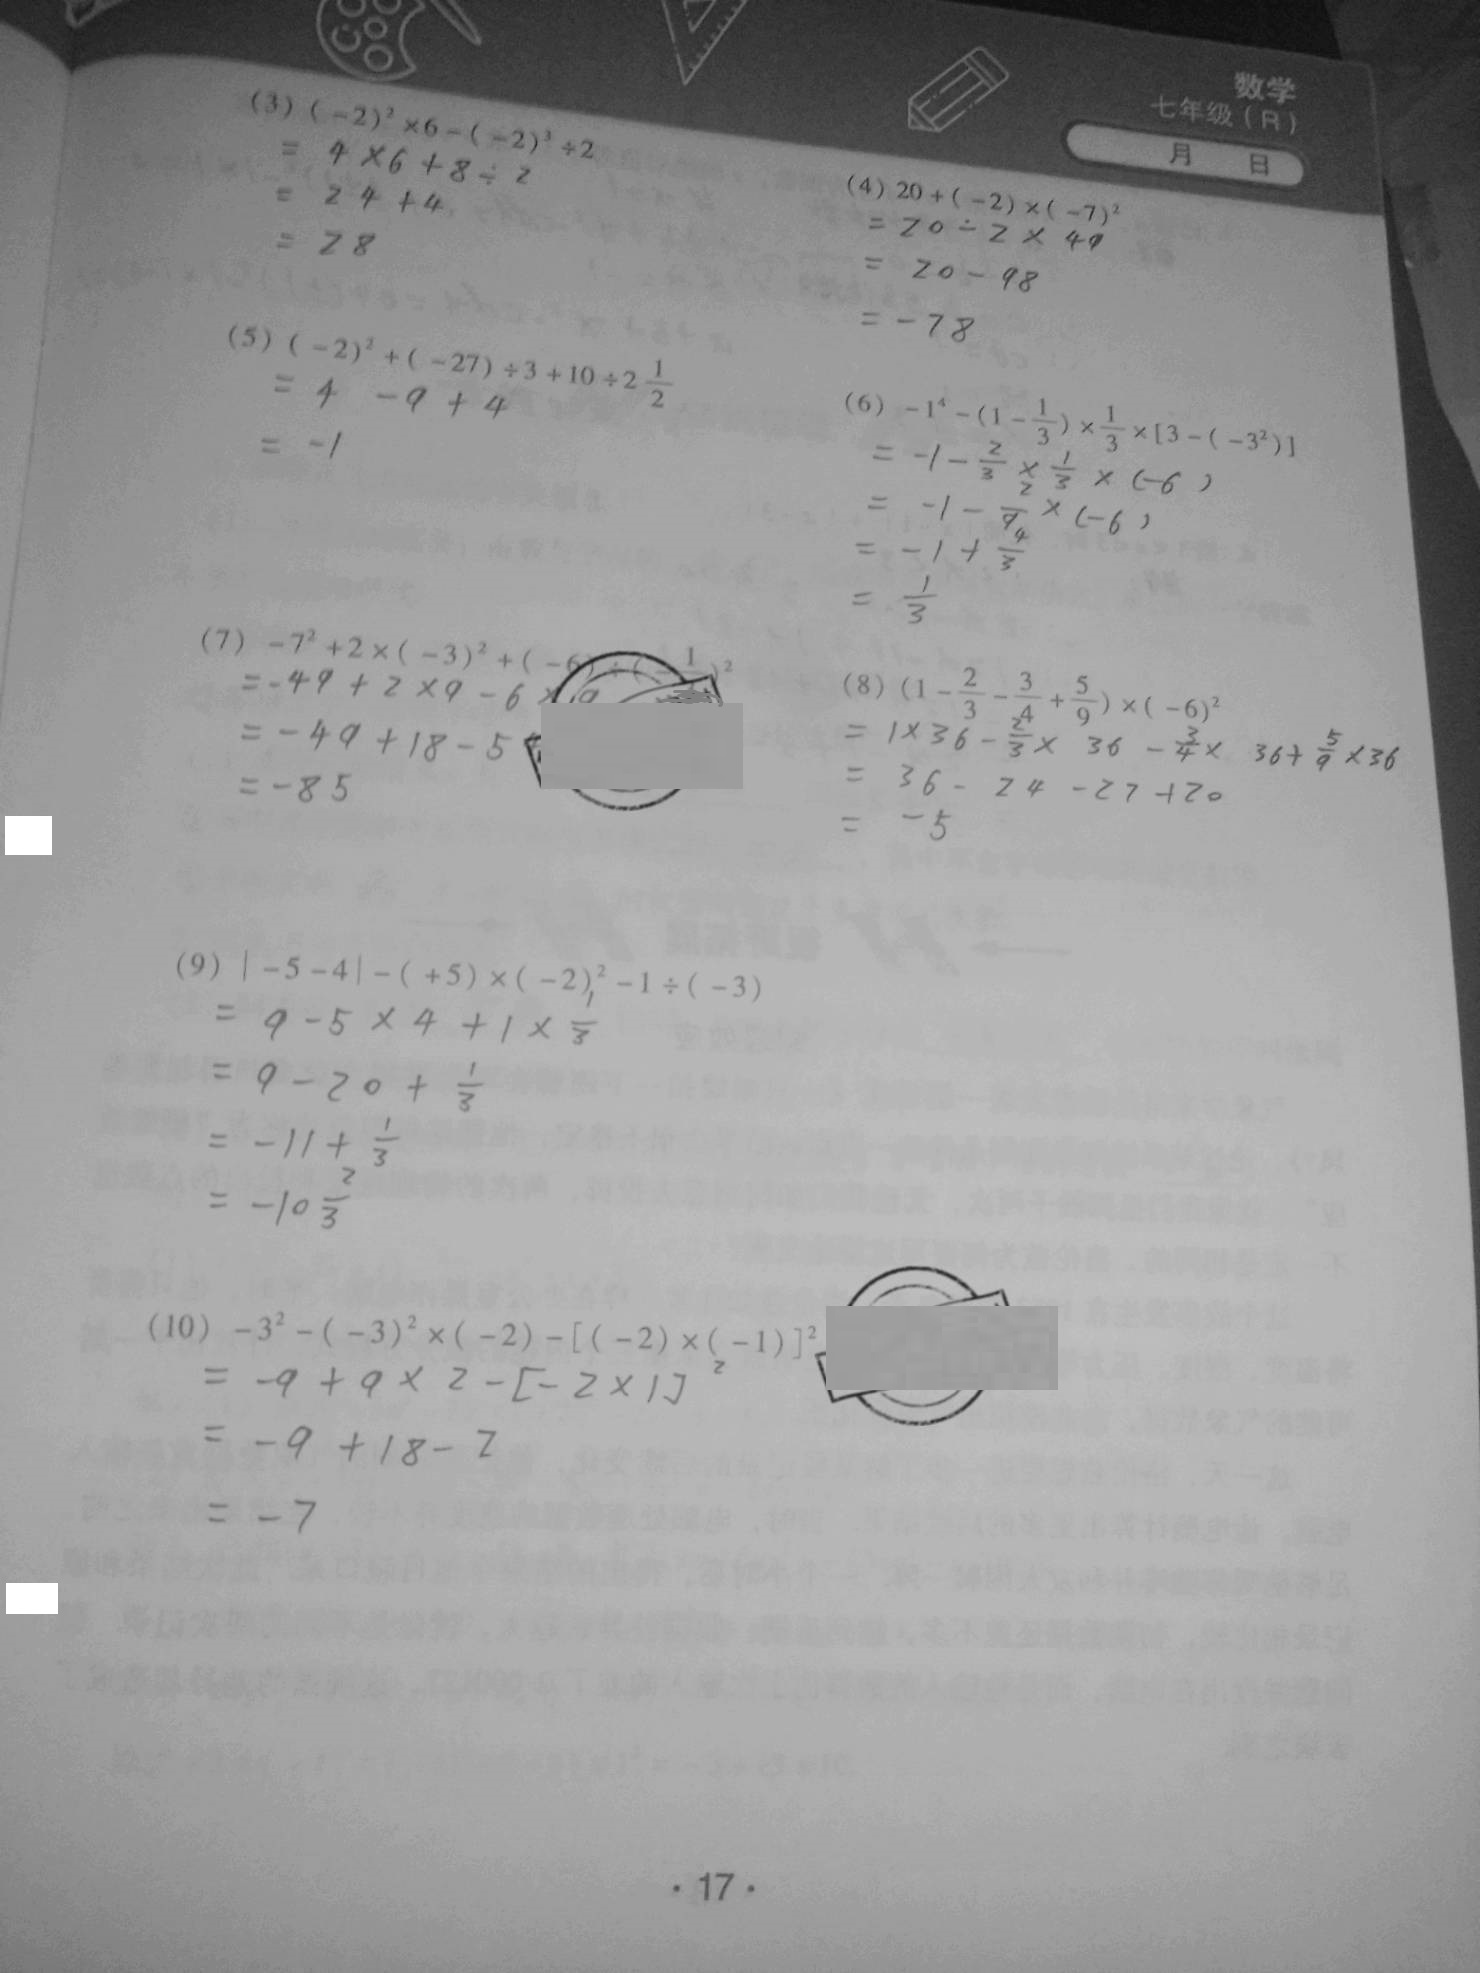 数学
七年级(R)
月 日
(3) (-2)²×6-(-2)³÷2
= 4×6+8÷2
= 24+4
= 28
(4) 20+(-2)×(-7)²
=20÷2×49
= 20-98
=-78
(5) (-2)²+(-27)÷3+10÷2 1/2
= 4 -9+4
= -1
(6) -1⁴-(1-1/3)×1/3×[3-(-3²)]
= -1-2/3×1/3×(-6)
= -1-2/9×(-6)
= -1+4/3
= 1/3
(7) -7²+2×(-3)²+(-6)÷(-1
=-49+2×9-6×9
=-49+18-54
=-85
(8) (1-2/3-3/4+5/9)×(-6)²
= 1×36-2/3×36-3/4×36+5/9×36
= 36-24-27+20
= -5
(9) |-5-4|-(+5)×(-2)²-1÷(-3)
= 9-5×4+1×1/3
= 9-20+1/3
= -11+1/3
= -10 2/3
(10) -3²-(-3)²×(-2)-[(-2)×(-1)]²
= -9+9×2-[-2×1]²
= -9+18-2
= -7
·17·